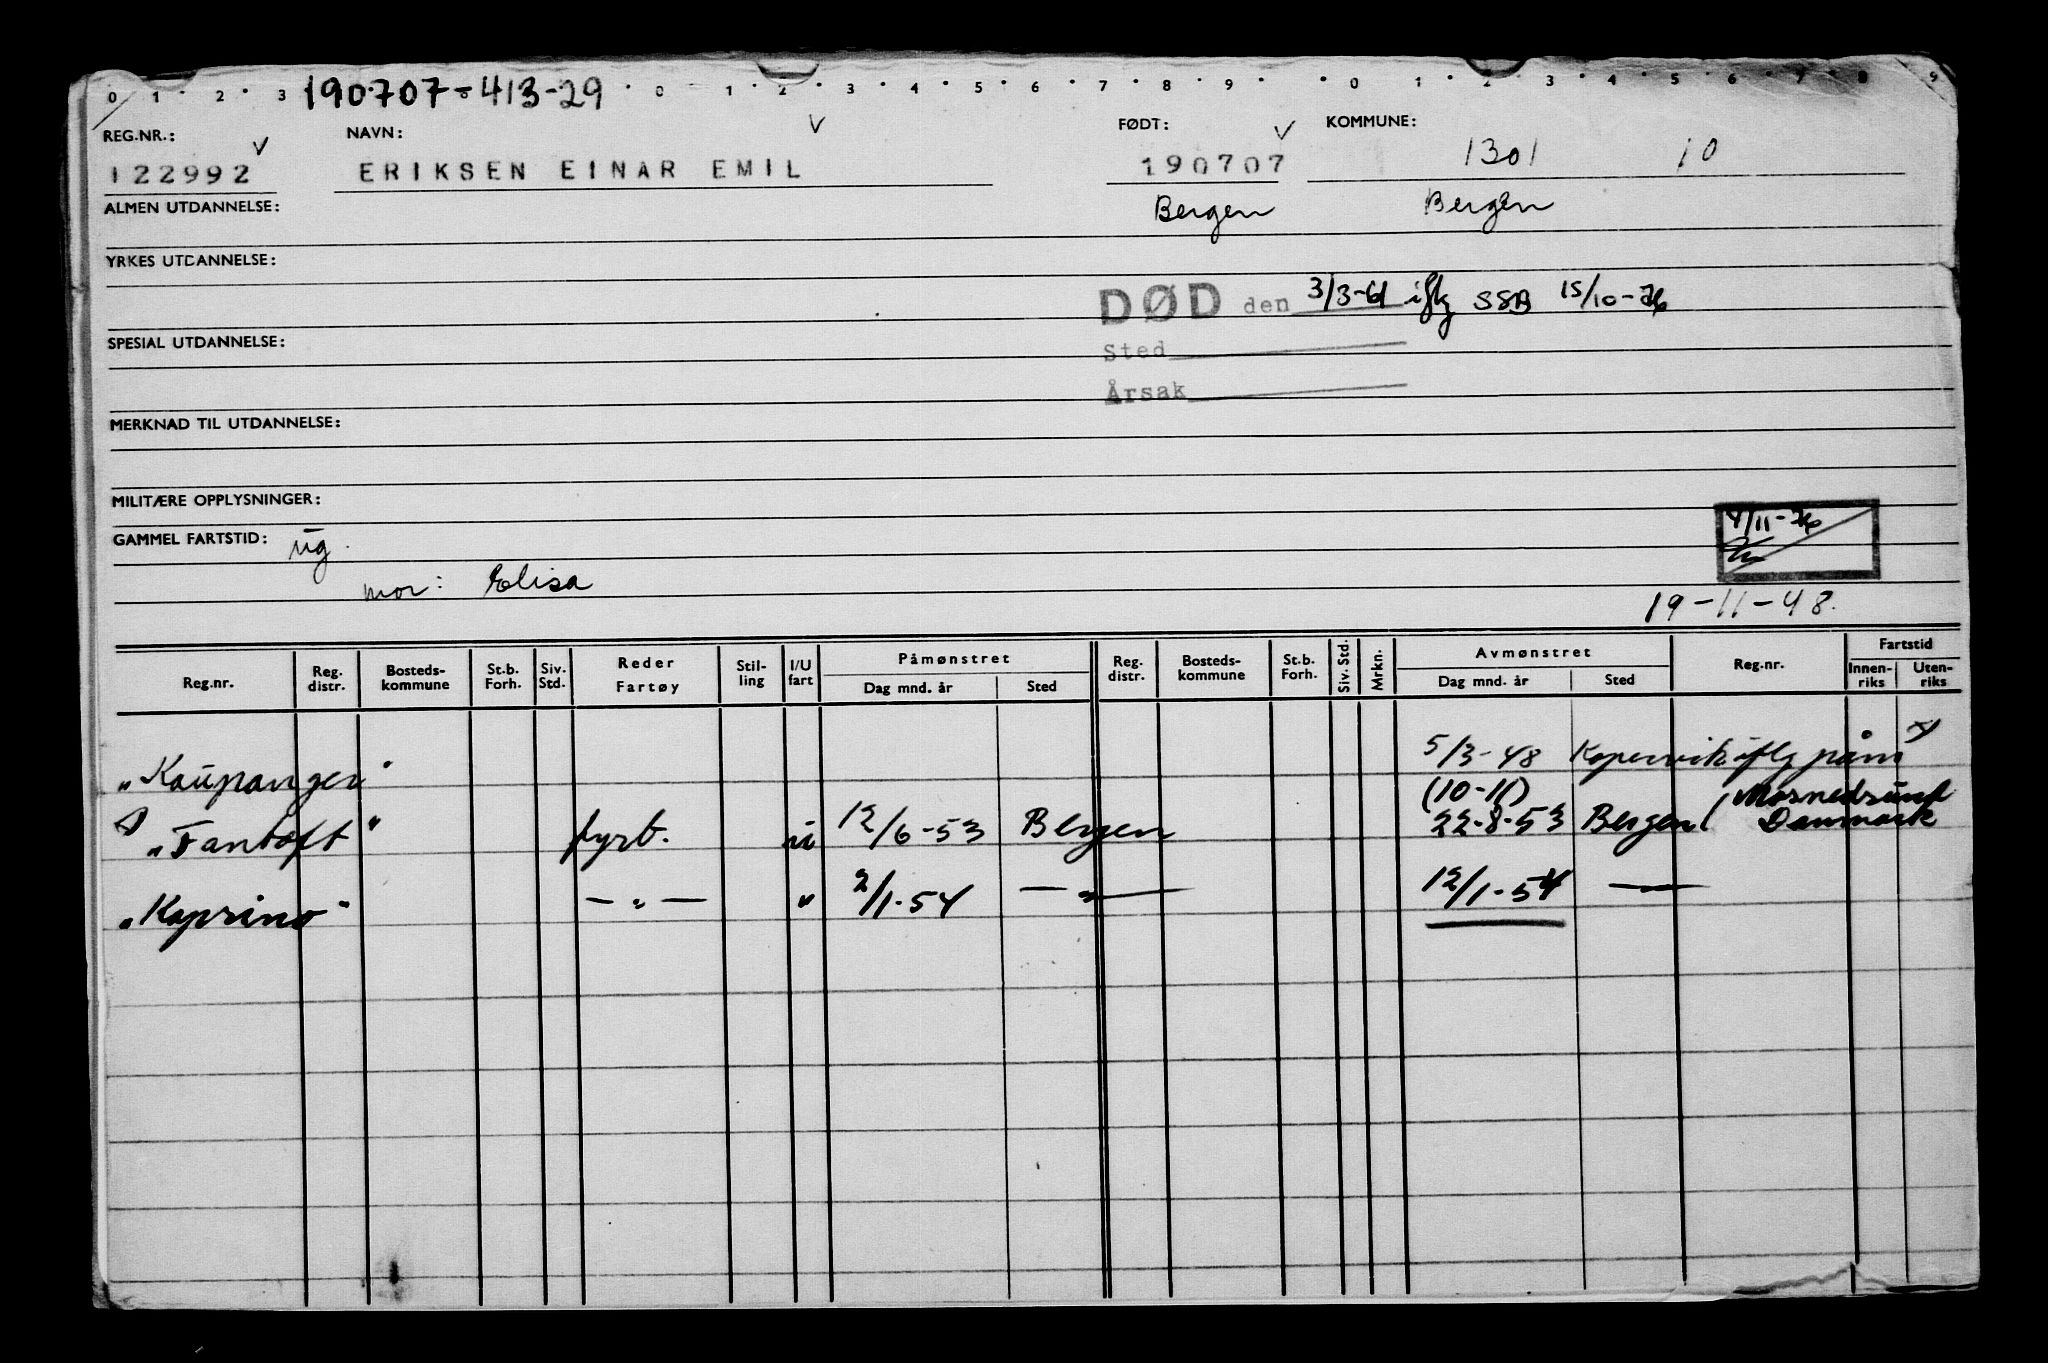 0 1 2 3 190707-413-29 0 1 2 3 4 5 6 7 8 9 0 1 2 3 4 5 6 7 8 9
REG.NR.: NAVN: FØDT: KOMMUNE:
122992 ERIKSEN EINAR EMIL 190707 1301 10
ALMEN UTDANNELSE: Bergen Bergen
YRKES UTDANNELSE:
DØD den 3/3-61 iflg SSB 15/10-76
SPESIAL UTDANNELSE: Sted
Årsak
MERKNAD TIL UTDANNELSE:
MILITÆRE OPPLYSNINGER:
4/11-76
GAMMEL FARTSTID: ug.
mor: Elisa
19-11-48.
Reg.nr. Reg. distr. Bosteds-kommune St.b. Forh. Siv. Std. Reder Fartøy Stil-ling I/U fart Påmønstret Dag mnd. år Sted Reg. distr. Bosteds-kommune St.b. Forh. Siv. Std. Mrkn. Avmønstret Dag mnd. år Sted Reg.nr. Fartstid Innen-riks Uten-riks
"Kaupanger" 5/3-48 Kopervik iflg påm
(10-11)
"Fantoft" fyrb. u 12/6-53 Bergen 22-8-53 Bergen (Masnedsund Danmark
"Kaprino" — " — " 2/1-54 — " — 12/1-54 —